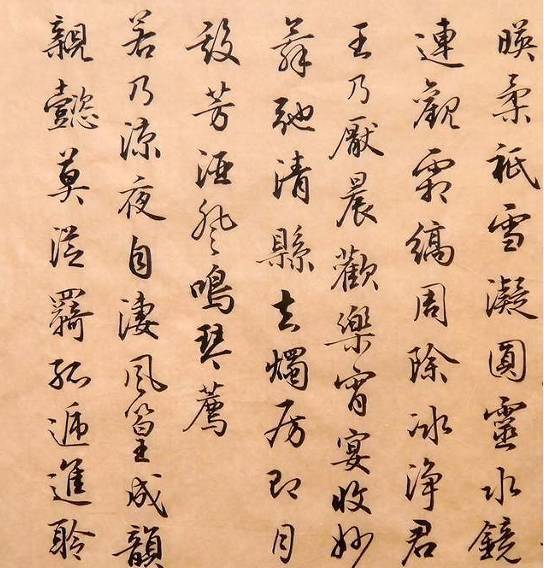 暎柔祇雪凝圓靈水鏡
連觀霜縞周除冰淨君
王乃厭晨歡樂宵宴收妙
舞弛清縣去燭房即月
殿芳酒登鳴琴薦
若乃涼夜自淒風篁成韻
親懿莫從羈孤遞進聆